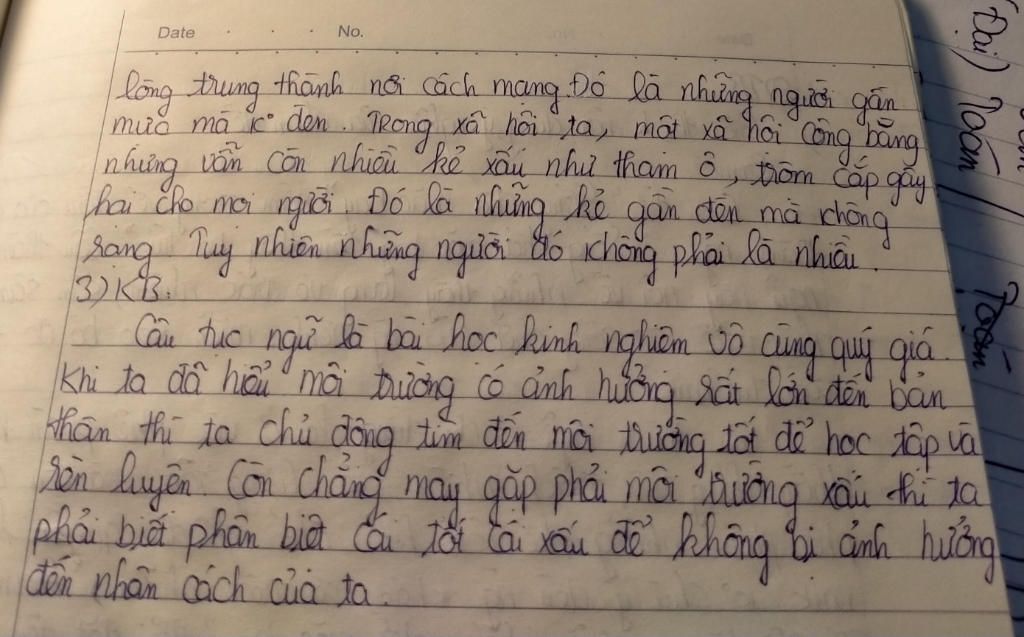 Date . . . No.
lòng trung thành nơi cách mạng. Đó là những người gần
mực mà k° đen. Trong xã hội ta, một xã hội công bằng
nhưng vẫn còn nhiều kẻ xấu như tham ô, trộm cắp gây
hại cho mọi người. Đó là những kẻ gần đèn mà không
rạng. Tuy nhiên những người đó không phải là nhiều.
3) KB.
Câu tục ngữ là bài học kinh nghiệm vô cùng quý giá.
Khi ta đã hiểu môi trường có ảnh hưởng rất lớn đến bản
thân thì ta chủ động tìm đến môi trường tốt để học tập và
rèn luyện. Còn chẳng may gặp phải môi trường xấu thì ta
phải biết phân biệt cái tốt cái xấu để không bị ảnh hưởng
đến nhân cách của ta.
Đại)
Toán
Toán